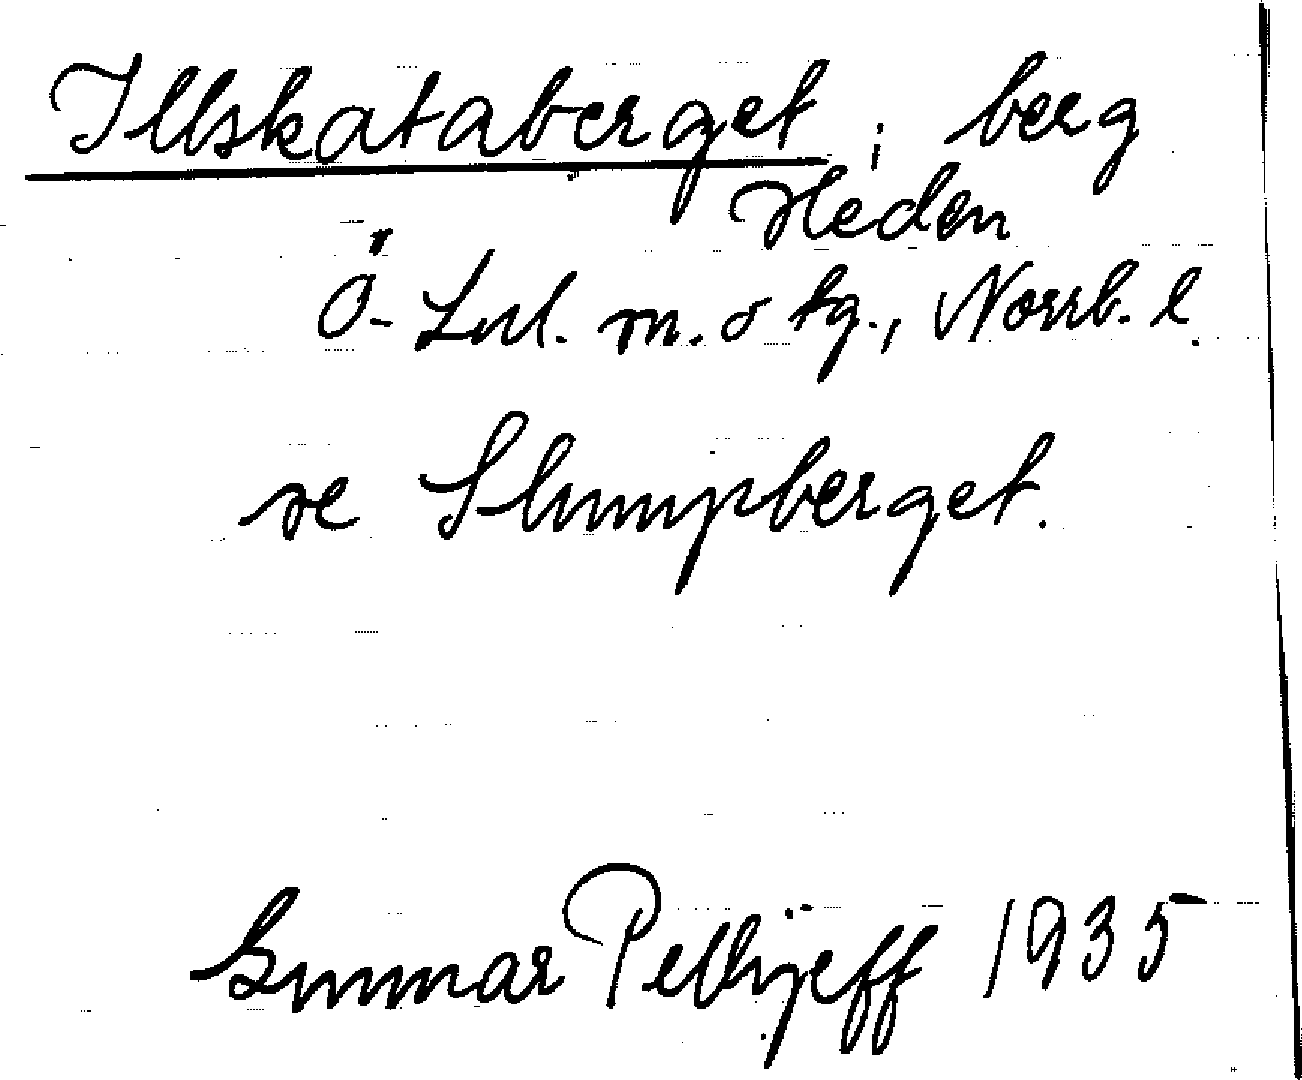 Illskataberget ; berg
Heden
Ö-Lul. m. o tg., Norrb. l.
se Slumpberget.
Gunnar Pellijeff 1935